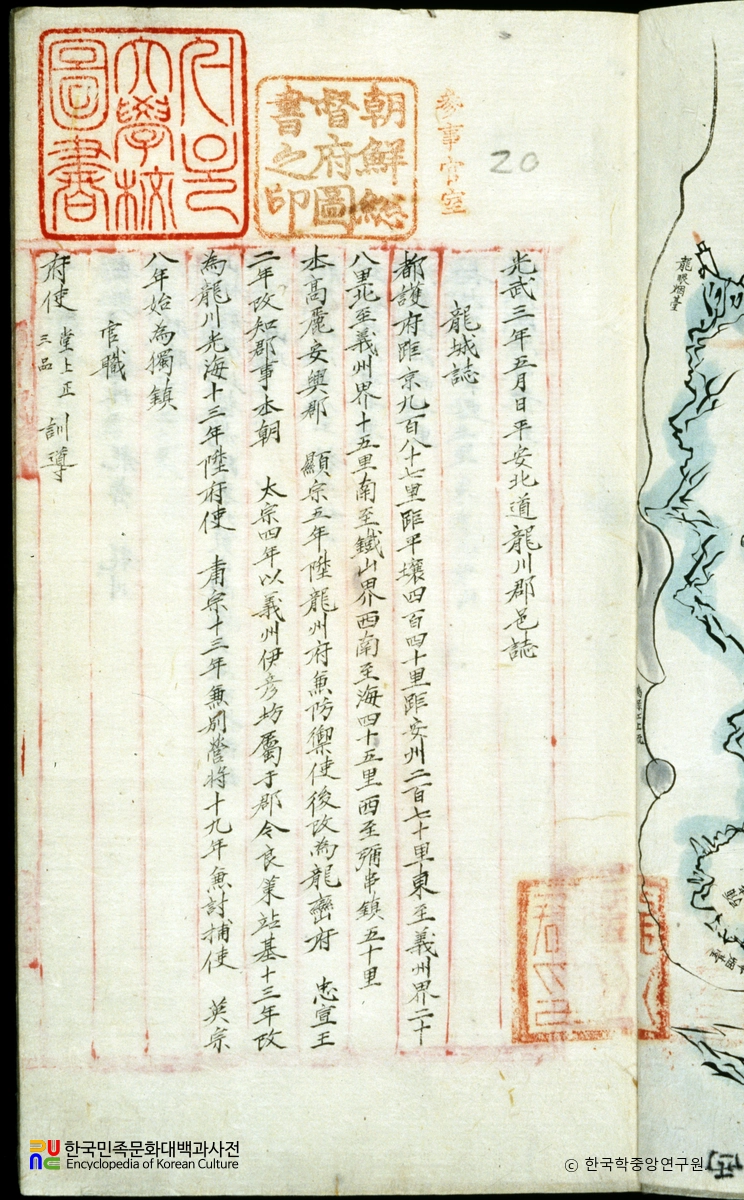 서울
大學校
圖書
朝鮮総
督府圖
書之印
參事官室
20
光武三年五月日平安北道龍川郡邑誌
龍城誌
都護府距京九百八十七里距平壤四百四十里距安州二百七十里東至義州界二十
八里北至義州界十五里南至鐵山界西南至海四十五里西至彌串鎮五十里
本高麗安興郡 顯宗五年陞龍州府兼防禦使後改為龍巒府 忠宣王
二年改知郡事本朝 太宗四年以義州伊彦坊屬于郡令良策站基十三年改
為龍川光海十三年陞府使 肅宗十三年兼別營將十九年兼討捕使 英宗
八年始為獨鎮
官職
府使 堂上正三品 訓導
龍眼烟臺
한국민족문화대백과사전
Encyclopedia of Korean Culture
© 한국학중앙연구원